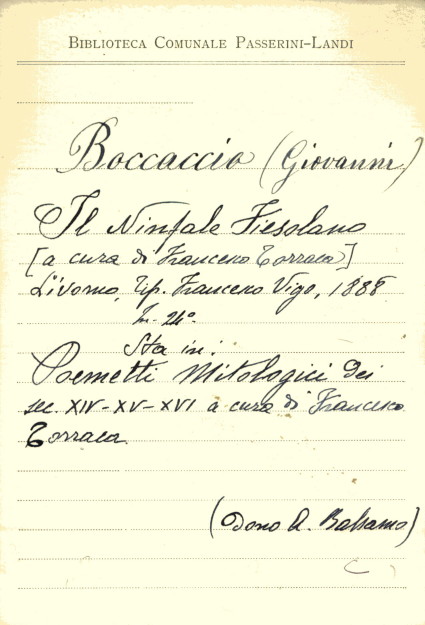 BIBLIOTECA COMUNALE PASSERINI-LANDI
Boccaccio (Giovanni)
Il Ninfale Fiesolano
[a cura di Francesco Torraca]
Livorno, Tip. Francesco Vigo, 1888
In-24°.
Sta in:
Poemetti Mitologici dei
sec. XIV-XV-XVI a cura di Francesco
Torraca
(Dono A. Balsamo)